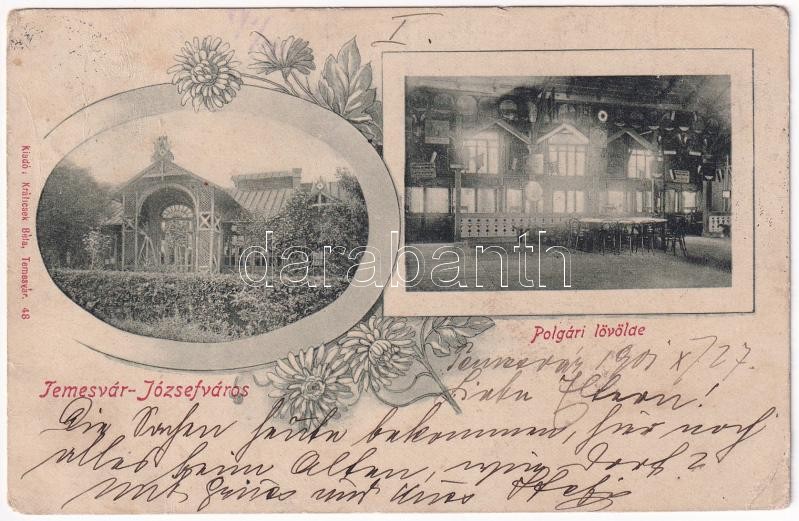 I
Kiadó: Králicsek Béla, Temesvár. 48
darabanth
Polgári lövölde
Temesvár-Józsefváros
Temesvár 901 X/27.
Liebe Eltern!
Die Sachen heute bekommen, hier noch
alles beim Alten, wie dort?
mit Gruss und Kuss